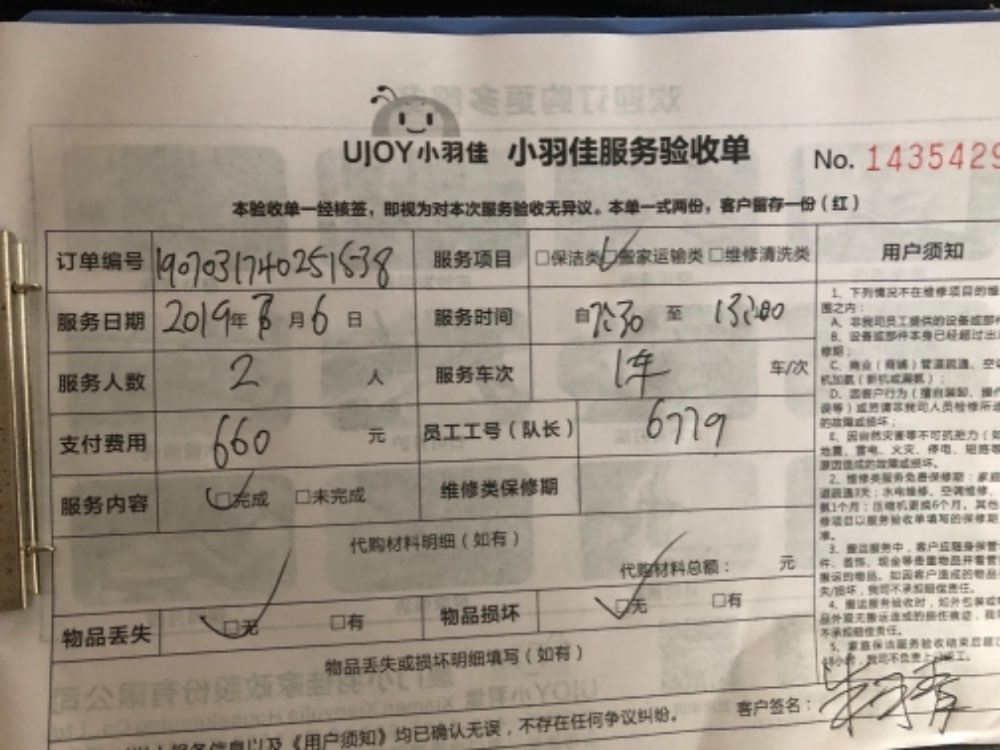 UJOY小羽佳 小羽佳服务验收单 No. 1435429
本验收单一经核签，即视为对本次服务验收无异议。本单一式两份，客户留存一份（红）
订单编号 1907031740251538 服务项目 □保洁类 □搬家运输类 □维修清洗类
服务日期 2019年 月6日 服务时间 自7:30 至 13:00
服务人数 2 人 服务车次 1车 车/次
支付费用 660 元 员工工号（队长） 6779
服务内容 □完成 □未完成 维修类保修期
代购材料明细（如有）
代购材料总额： 元
物品丢失 □无 □有 物品损坏 □无 □有
物品丢失或损坏明细填写（如有）
客户签名：
服务信息以及《用户须知》均已确认无误，不存在任何争议纠纷。
用户须知
1、下列情况不在维修项目的维
围之内：
A、非我司员工提供的设备或部
B、设备或部件本身已经超过出
修期；
C、商业（商铺）管道疏通、空
机加氨（新机或漏氨）；
D、因客户行为（擅自装卸、操作
误等）或另请非我司人员检修所
的故障或损坏；
E、因自然灾害等不可抗拒力（如
地震、雷电、火灾、停电、短路等
原因造成的故障或损坏。
2、维修类服务免费保修期：家庭
道疏通3天；水电维修、空调维修、
氨1个月；压缩机更换6个月。其他
修项目以服务验收单填写的保修期
准。
3、搬运服务中，客户应随身保管
件、首饰、现金等贵重物品并看管
搬运的物品。如因客户造成的物品
失/损坏，我司不承担赔偿责任。
4、搬运服务验收时，如外包装或
品外观无搬运造成的损伤痕迹，我
不承担赔偿责任。
5、家庭保洁服务验收结束后超过
48小时，我司不负责